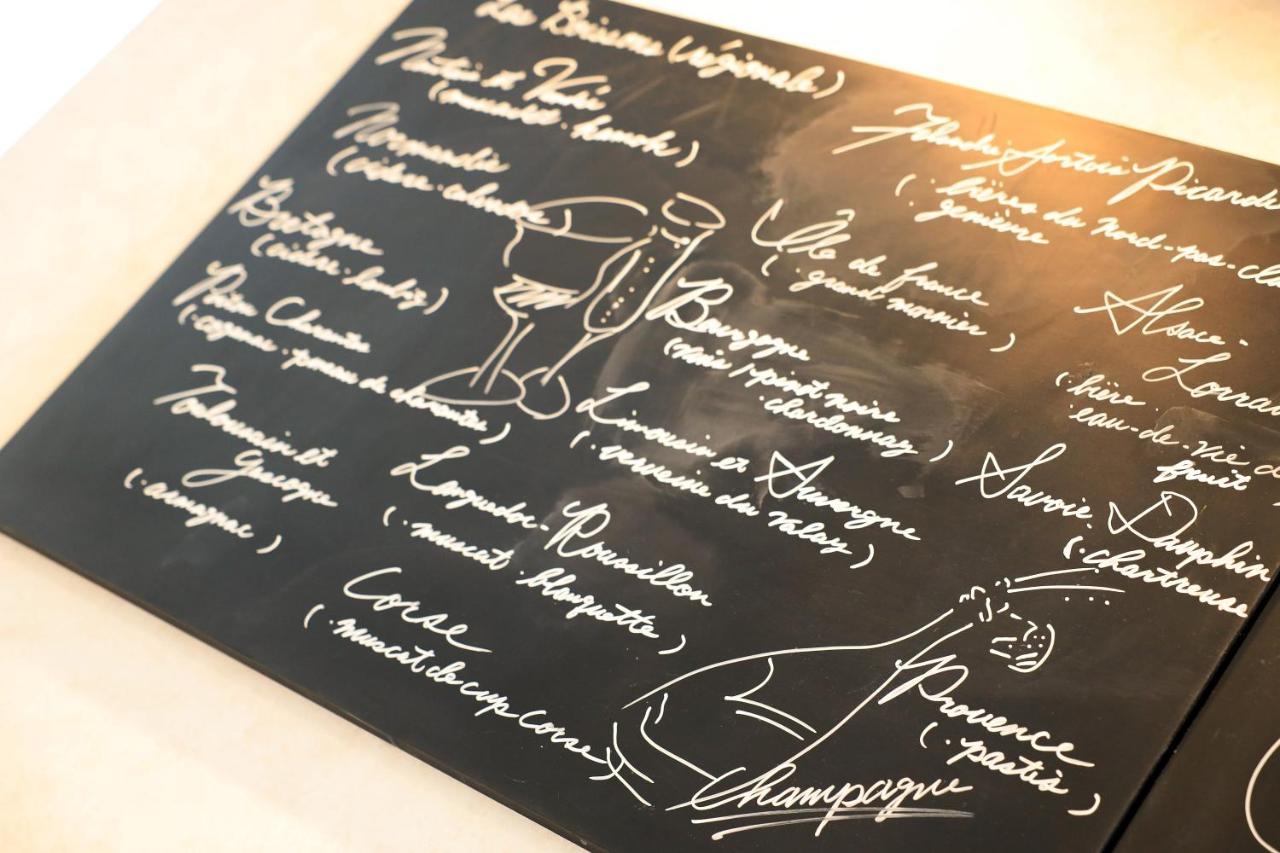 Les Boissons (régionale)
Nantes et
(muscadet.
Normandie
(cidre. calvados)
Bretagne
(cidre.
Poitou Charentes
(cognac. pineau de charentes)
Toulousain et
Gascogne
(.armagnac)
Languedoc-Roussillon
(.muscat .blanquette)
Corse
(.muscat de cap Corse)
Picardie
(.bières du Nord-pas-
.genièvre
Île de france
(.grand marnier)
Bourgogne
pinot noire
chardonnay)
Limousin et Auvergne
(.verveine du Valay)
Alsace-
Lorrai
(bière.
eau-de-vie d
fruit
Savoie. Dauphin
(.chartreuse
Provence
(.pastis)
Champagne